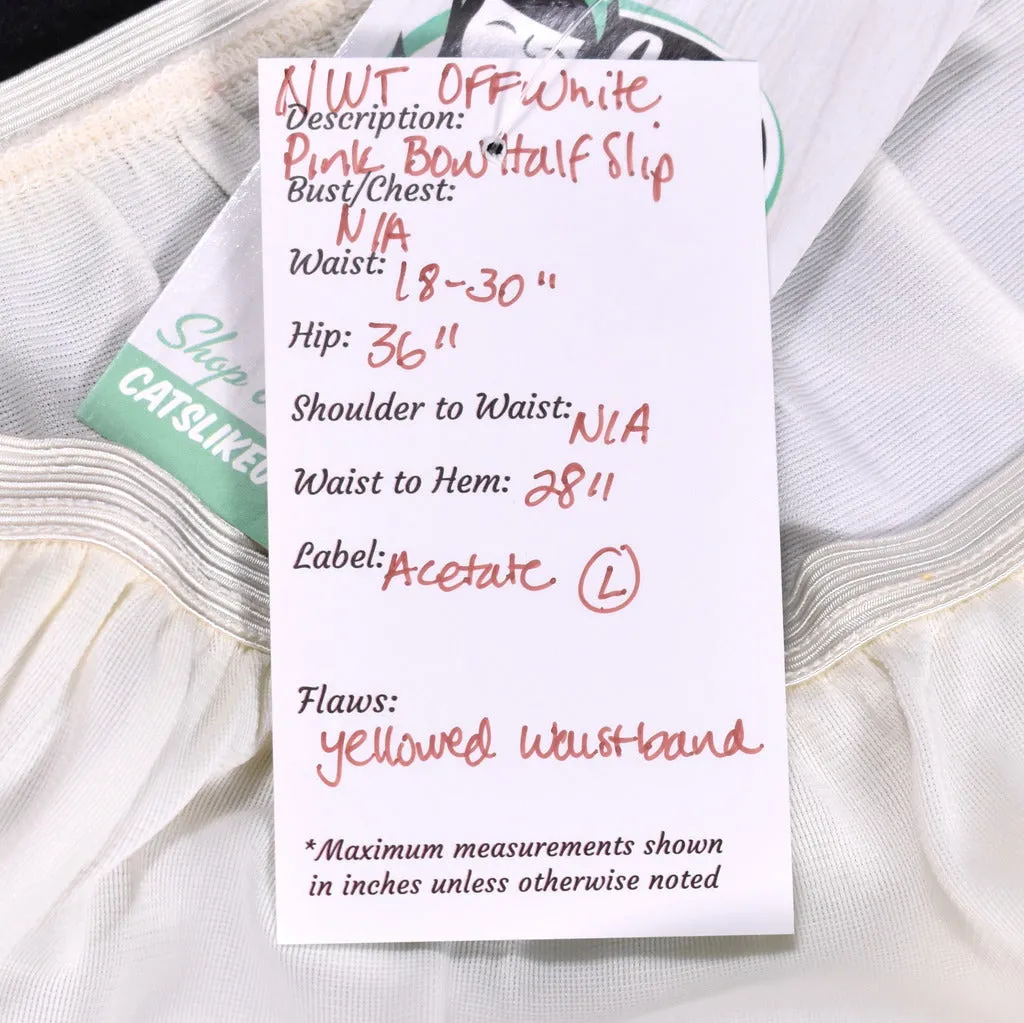 NWT OFFWhite
Description:
Pink Bow Half Slip
Bust/Chest:
N/A
Waist: 18-30"
Hip: 36"
Shoulder to Waist: N/A
Waist to Hem: 28"
Label: Acetate L
Flaws:
yellowed waistband
*Maximum measurements shown
in inches unless otherwise noted
Shop
CATSLIKE